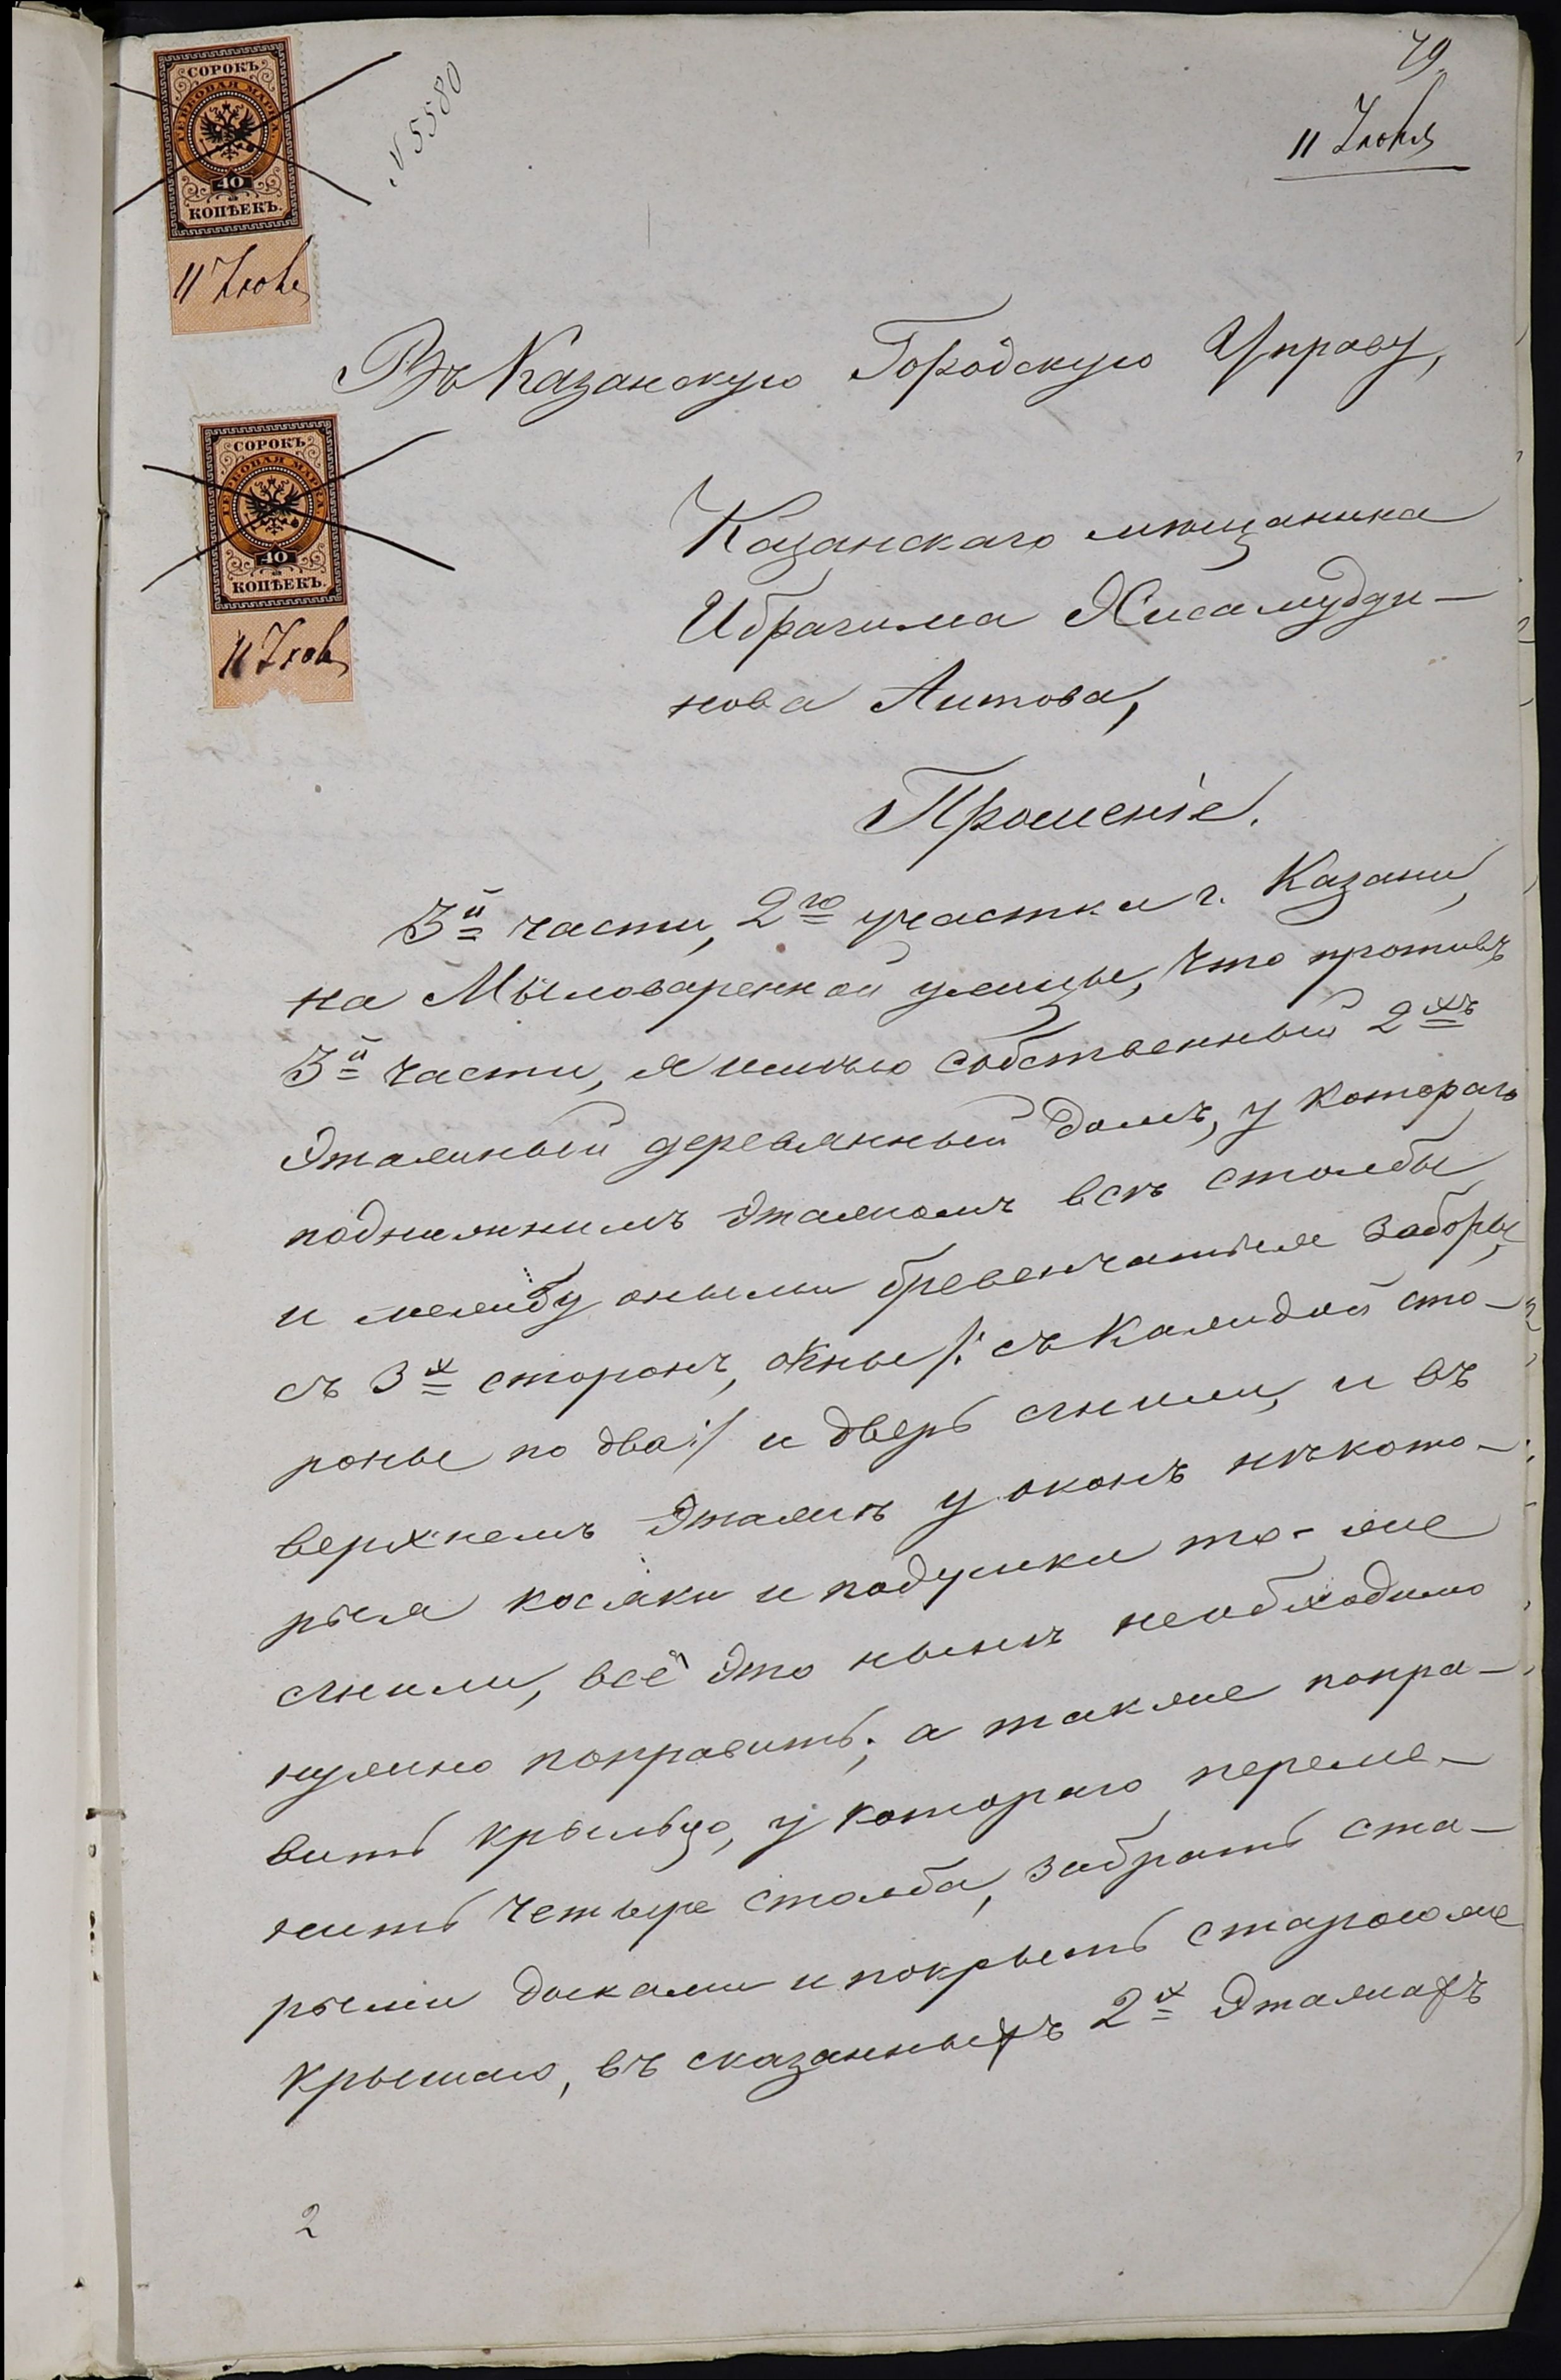 79
11 Июня
№ 5580
СОРОКЪ
ГЕРБОВАЯ МАРКА
40
КОПѢЕКЪ.
11 Июня
Въ Казанскую Городскую Управу,
СОРОКЪ
ГЕРБОВАЯ МАРКА
40
КОПѢЕКЪ.
11 Июня
Казанскаго мѣщанина
Ибрагима Хисамудди-
нова Аитова,
Прошеніе.
3й части, 2го участка г. Казани,
на Мыловаренной улицы, что противъ
3й части, я имѣю собственный 2хъ
этажный деревянный домъ, у котораго
поднижнимъ этажомъ всѣ столбы
и между оными бревенчатыя заборы,
съ 3х сторонъ, окны /: съ каждой сто-
роны по два :/ и дверь сгнили, и въ
верхнемъ этажѣ у оконъ нѣкото-
рыя косяки и подушки то-же
сгнили, всё это нынѣ необходимо
нужно поправить; а также попра-
вить крыльцо, у котораго переме-
нить четыре столба, забрать ста-
рыми досками и покрыть старою же
крышаю, въ сказанныхъ 2х этажахъ
2